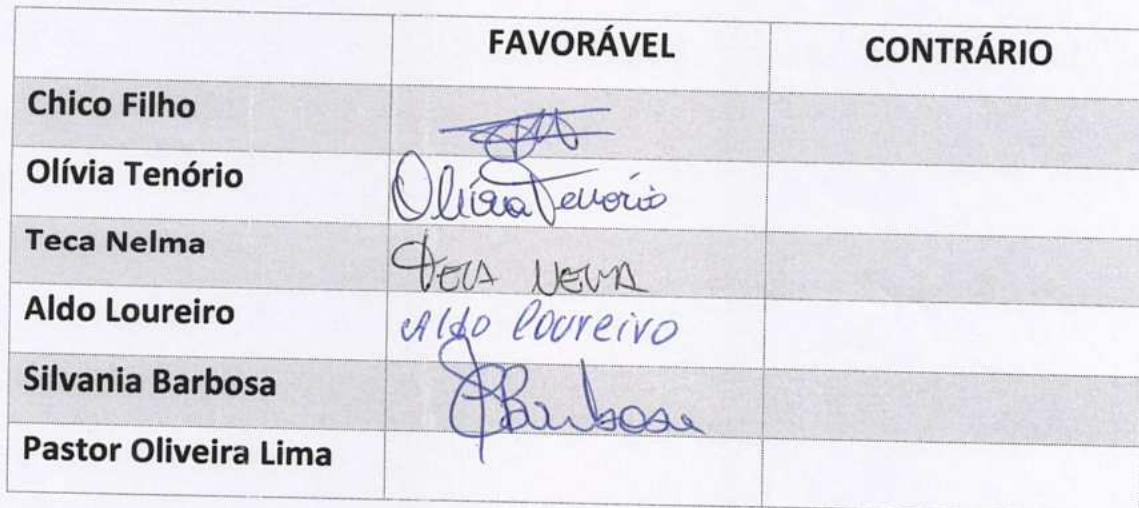 FAVORÁVEL CONTRÁRIO
Chico Filho
Olívia Tenório Olívia Tenório
Teca Nelma TECA NELMA
Aldo Loureiro Aldo Loureiro
Silvania Barbosa SBarbosa
Pastor Oliveira Lima